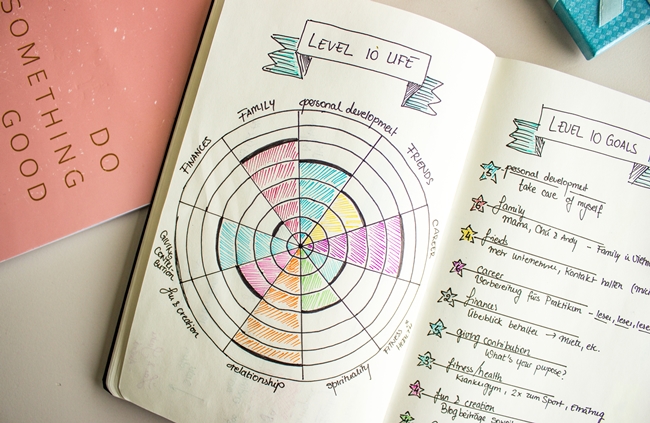 DO
SOMETHING
GOOD
LEVEL 10 LIFE
FAMILY
personal development
FRIENDS
CAREER
FITNESS
spirituality
relationship
fun & creation
GIVING
CONTRI
BUTION
FINANCES
LEVEL 10 GOALS
5 personal development
take care of myself
6 family
mama, Chá & Andy - Family in
4 friends
mehr unternehmen, Kontakt halten
career
Vorbereitung für Praktikum - lesen, lesen, lesen
finances
Überblick behalten → miete, etc.
giving contribution
What's your purpose?
3 fitness/health
Krankengym, 2x zum Sport, ernährung
fun & creation
Blogbeiträge